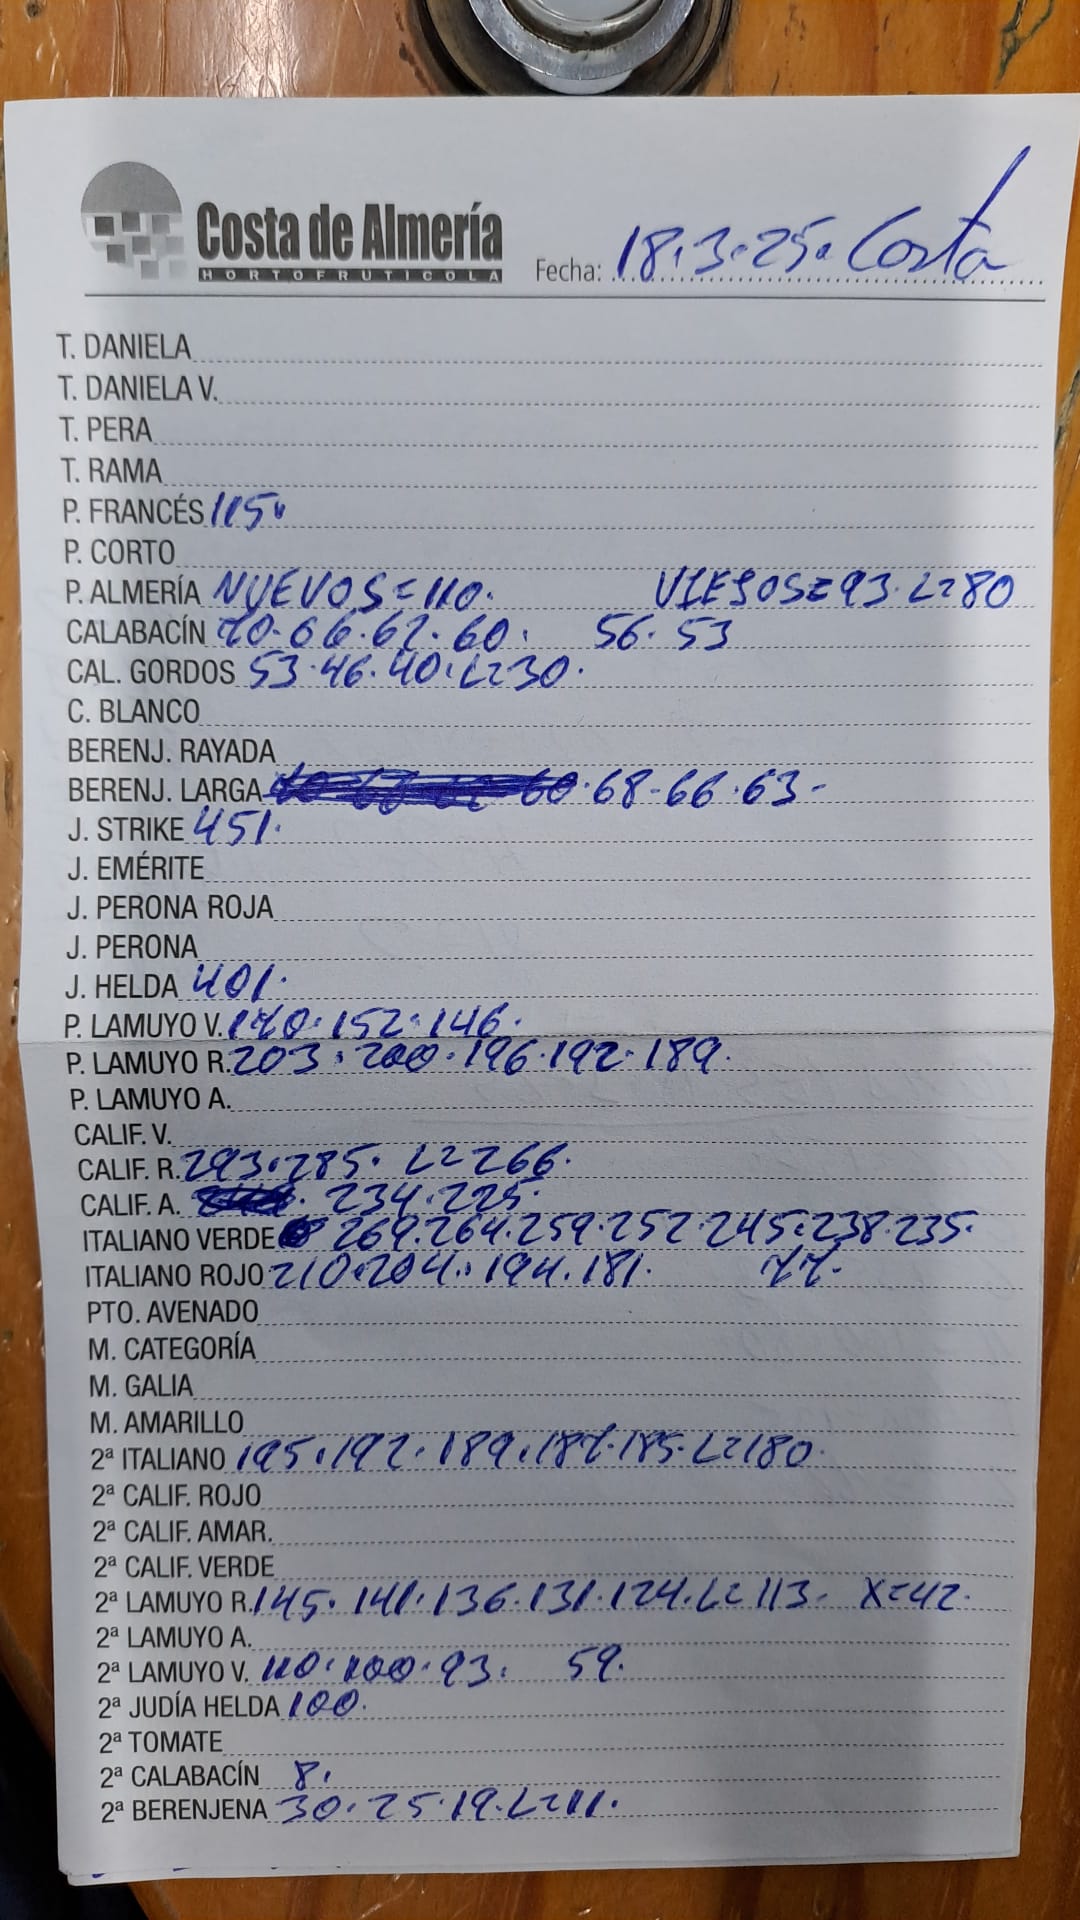 Costa de Almería
HORTOFRUTICOLA
Fecha: 18.3.25. Costa
T. DANIELA
T. DANIELA V.
T. PERA
T. RAMA
P. FRANCÉS 115.
P. CORTO
P. ALMERÍA NUEVOS=110. VIEJOS=93.L=80
CALABACÍN 70.66.62.60. 56.53
CAL. GORDOS 53.46.40.L=30.
C. BLANCO
BERENJ. RAYADA
BERENJ. LARGA .68-66.63-
J. STRIKE 451.
J. EMÉRITE
J. PERONA ROJA
J. PERONA
J. HELDA 401.
P. LAMUYO V. 170.152.146.
P. LAMUYO R. 203.200.196.192.189.
P. LAMUYO A.
CALIF. V.
CALIF. R. 293.285. L=266.
CALIF. A. 234.225.
ITALIANO VERDE 269.264.259.252.245.238.235.
ITALIANO ROJO 210.204.194.181. 77.
PTO. AVENADO
M. CATEGORÍA
M. GALIA
M. AMARILLO
2ª ITALIANO 195.192.189.187.185.L=180.
2ª CALIF. ROJO
2ª CALIF. AMAR.
2ª CALIF. VERDE
2ª LAMUYO R. 145.141.136.131.124.L=113. X=42.
2ª LAMUYO A.
2ª LAMUYO V. 110.100.93. 59.
2ª JUDÍA HELDA 100.
2ª TOMATE
2ª CALABACÍN 8.
2ª BERENJENA 30.25.19.L=11.